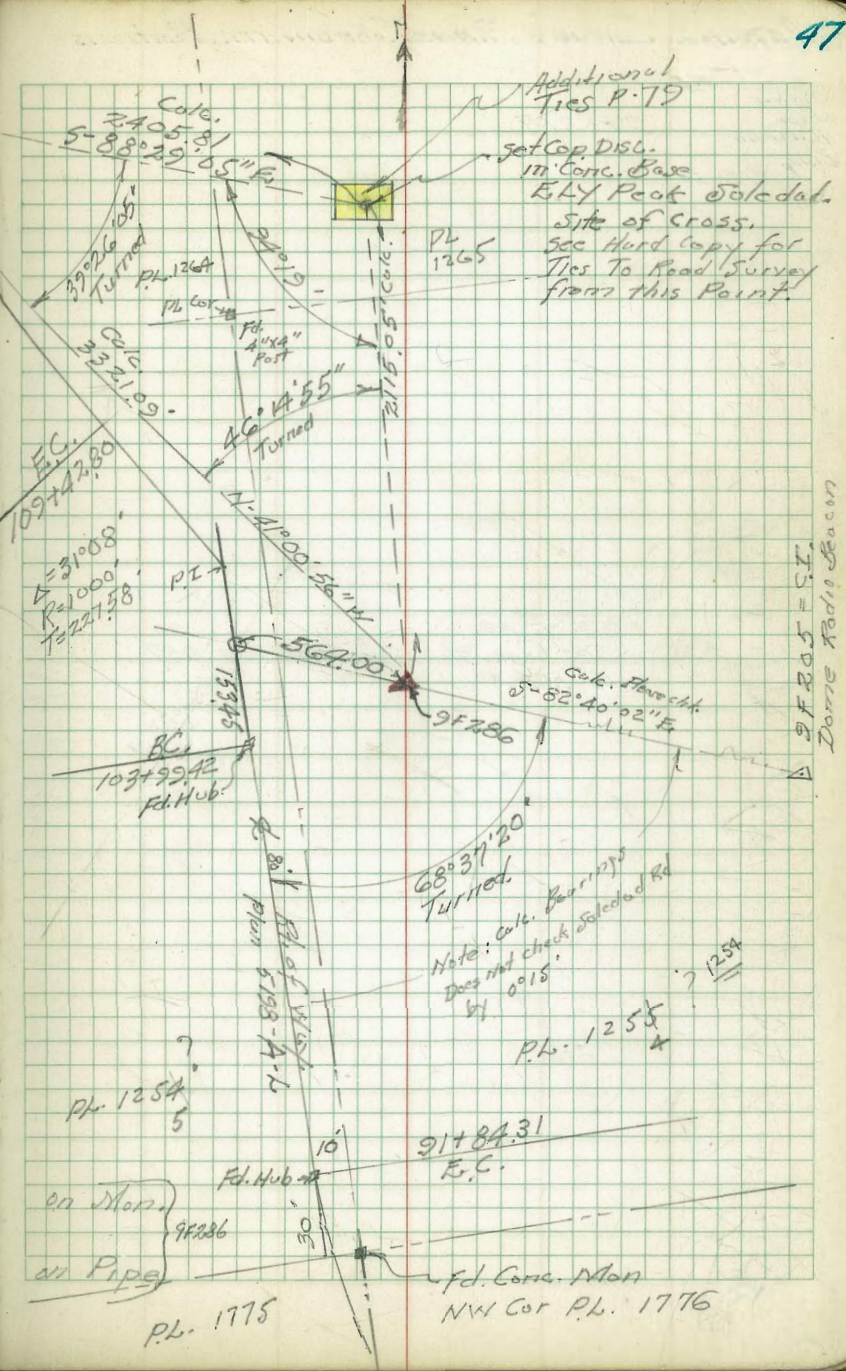 47
Additional
Ties P-79
Calc.
2405.81
S-88°29'05"E.
set Cop. Disc.
in Conc. Base
ELY Peak Soledad.
Site of Cross.
See Hard Copy for
Ties To Road Survey
from this Point.
39°26'05"
Turned
94°19'
PL
1265
PL. 1264
PL Cor.
Fd.
4"x4"
Post
2115.05' Calc.
Calc.
3321.09'
46°14'55"
Turned
E.C.
109+42.80
N-41°00'56"W
Δ=31°08'
R=1000'
T=227.58'
P.I.
564.00
153.45
9F286
S-82°40'02"E.
9F205 = C.I.
Dome Radio Beacon
B.C.
103+99.42
Fd. Hub.
80'
Rt of Way
Plan 5198-A-L
68°37'20"
Turned.
Note: Calc. Bearings
Does Not check Soledad Rd
by 0°15'
? 1254
P.L. 1255
4
?
P.L. 1254
5
91+84.31
E.C.
10'
Fd. Hub
30'
on Mon.
9F286
on Pipe
Fd. Conc. Mon
NW Cor P.L. 1776
P.L. 1775